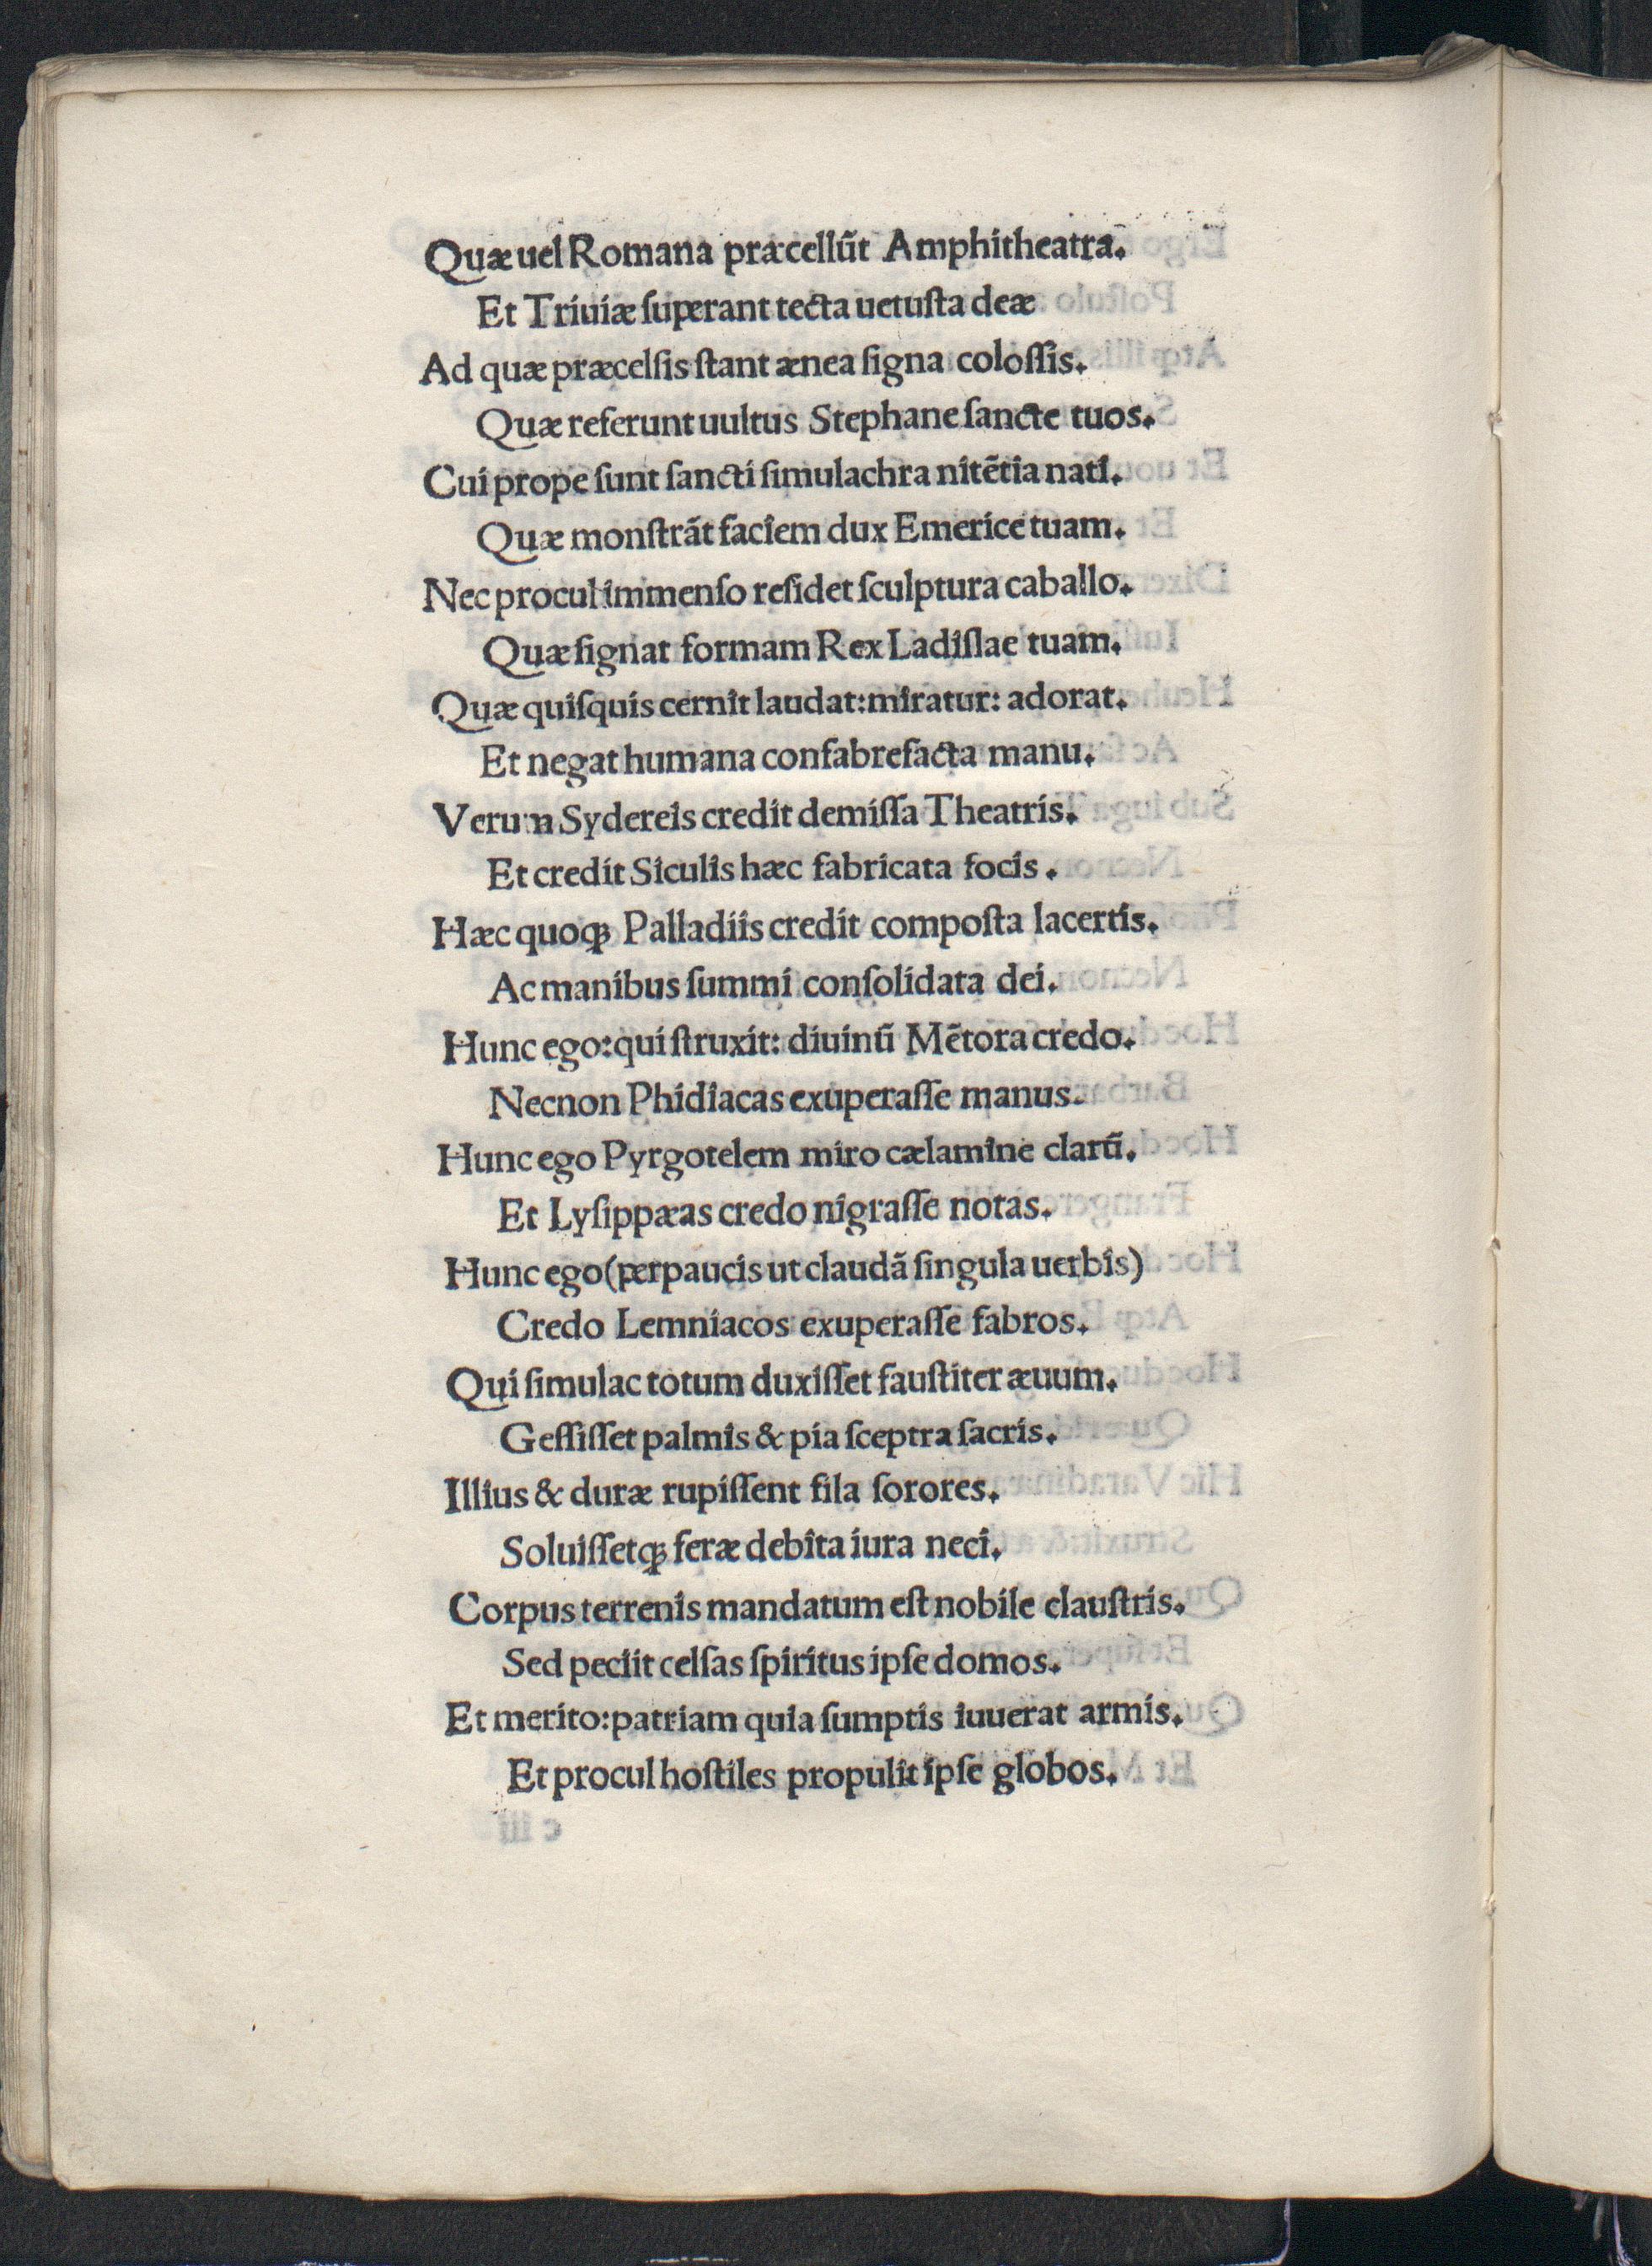 Quæ uel Romana præcellūt Amphitheatra.
Et Triuiæ ſuperant tecta uetuſta deæ
Ad quæ præcelſis ſtant ænea ſigna coloſſis.
Quæ referunt uultus Stephane ſancte tuos.
Cui prope ſunt ſancti ſimulachra nitētia nati.
Quæ monſtrāt faciem dux Emerice tuam.
Nec procul immenſo reſidet ſculptura caballo.
Quæ ſignat formam Rex Ladiſlae tuam.
Quæ quiſquis cernit laudat: miratur: adorat.
Et negat humana confabrefacta manu.
Verum Sydereis credit demiſſa Theatris.
Et credit Siculis hæc fabricata focis.
Hæc quoqꝫ Palladiis credit compoſta lacertis.
Ac manibus ſummi conſolidata dei.
Hunc ego: qui ſtruxit: diuinū Mētora credo.
Necnon Phidiacas exuperaſſe manus.
Hunc ego Pyrgotelem miro cælamine clarū.
Et Lyſippæas credo nigraſſe notas.
Hunc ego (perpaucis ut claudā ſingula uerbis)
Credo Lemniacos exuperaſſe fabros.
Qui ſimulac totum duxiſſet fauſtiter æuum.
Geſſiſſet palmis & pia ſceptra ſacris.
Illius & duræ rupiſſent fila ſorores.
Soluiſſetqꝫ feræ debita iura neci.
Corpus terrenis mandatum eſt nobile clauſtris.
Sed peciit celſas ſpiritus ipſe domos.
Et merito: patriam quia ſumptis iuuerat armis.
Et procul hoſtiles propulit ipſe globos.